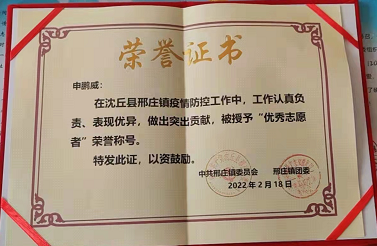 荣誉证书
申鹏威：
在沈丘县邢庄镇疫情防控工作中，工作认真负
责、表现优异，做出突出贡献，被授予“优秀志愿
者”荣誉称号。
特发此证，以资鼓励。
中共邢庄镇委员会 邢庄镇团委
2022年2月18日